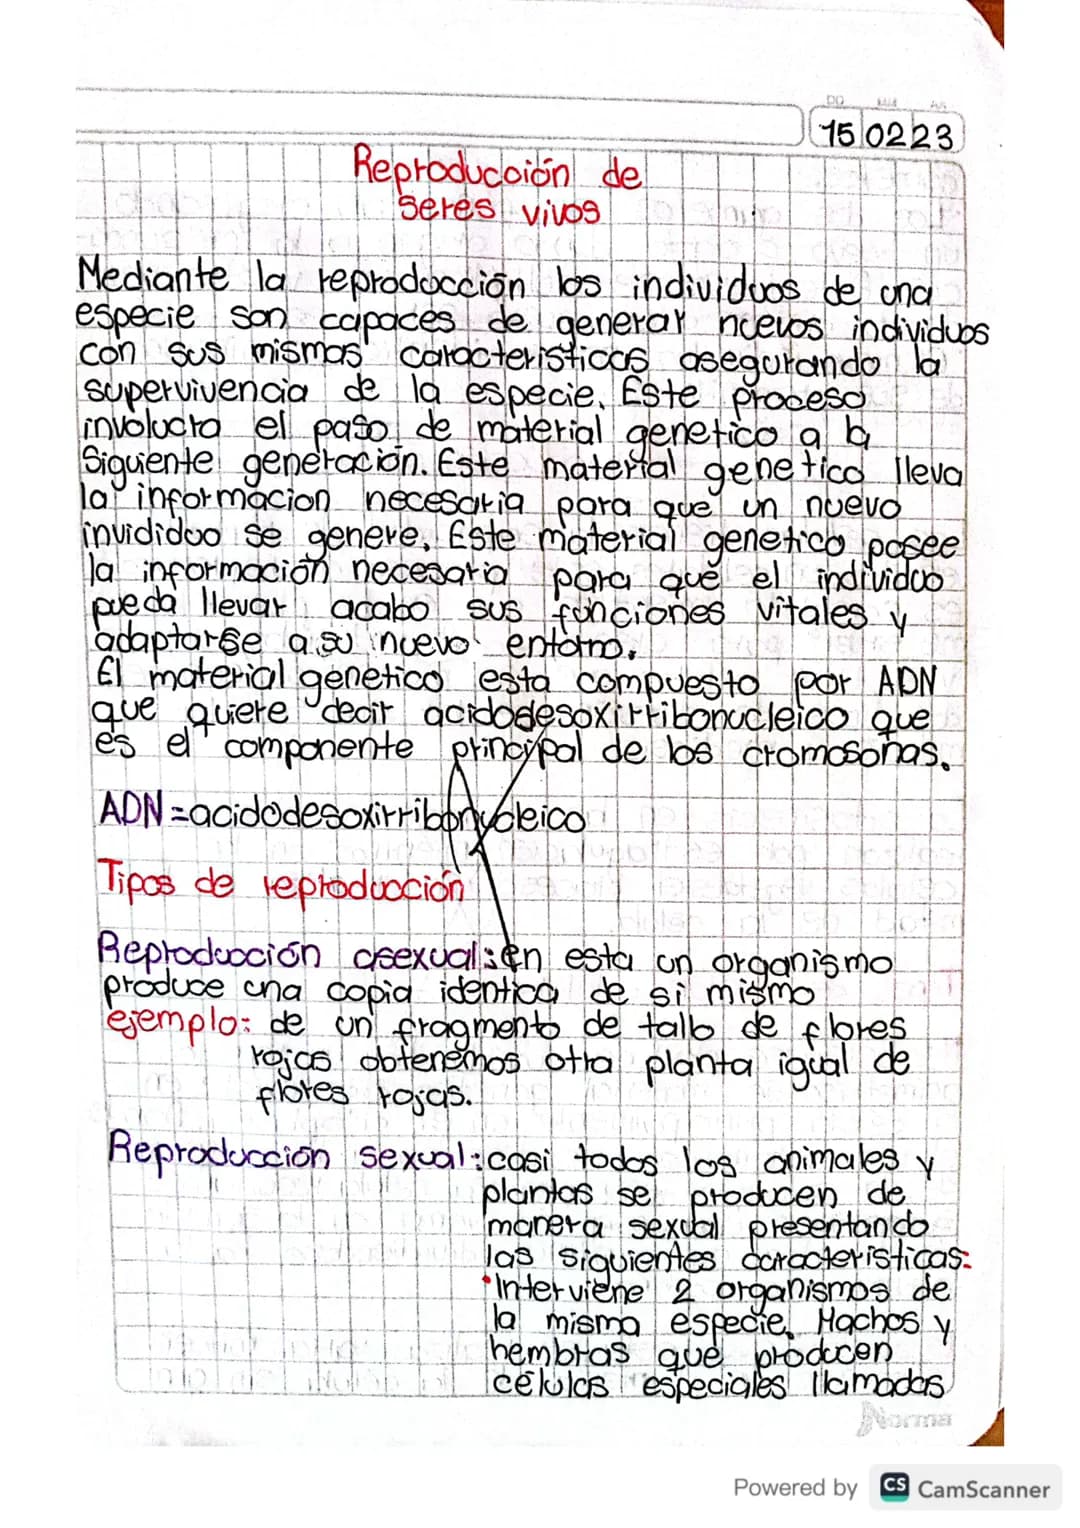 DD MM AA
15 02 23
Reproducción de
seres vivos
Mediante la reproducción los individuos de una
especie son capaces de generar nuevos individuos
con sus mismas caracteristicas asegurando la
supervivencia de la especie. Este proceso
involucra el paso de material genetico a la
Siguiente generación. Este material genetico lleva
la informacion necesaria para que un nuevo
invididuo se genere. Este material genetico posee
la información necesaria para que el individuo
pueda llevar acabo sus funciones vitales y
adaptarse a su nuevo entorno.
El material genetico esta compuesto por ADN
que quiere decir acidodesoxirribonucleico que
es el componente principal de los cromosomas.
ADN = acidodesoxirribonucleico
Tipos de reproducción
Reproducción asexual: en esta un organismo
produce una copia identica de si mismo
ejemplo: de un fragmento de tallo de flores
rojas obtenemos otra planta igual de
flores rojas.
Reproducción sexual: casi todos los animales y
plantas se producen de
manera sexual presentando
las siguientes caracteristicas:
•Interviene 2 organismos de
la misma especie. Machos y
hembras que producen
células especiales llamadas
Norma
Powered by CS CamScanner